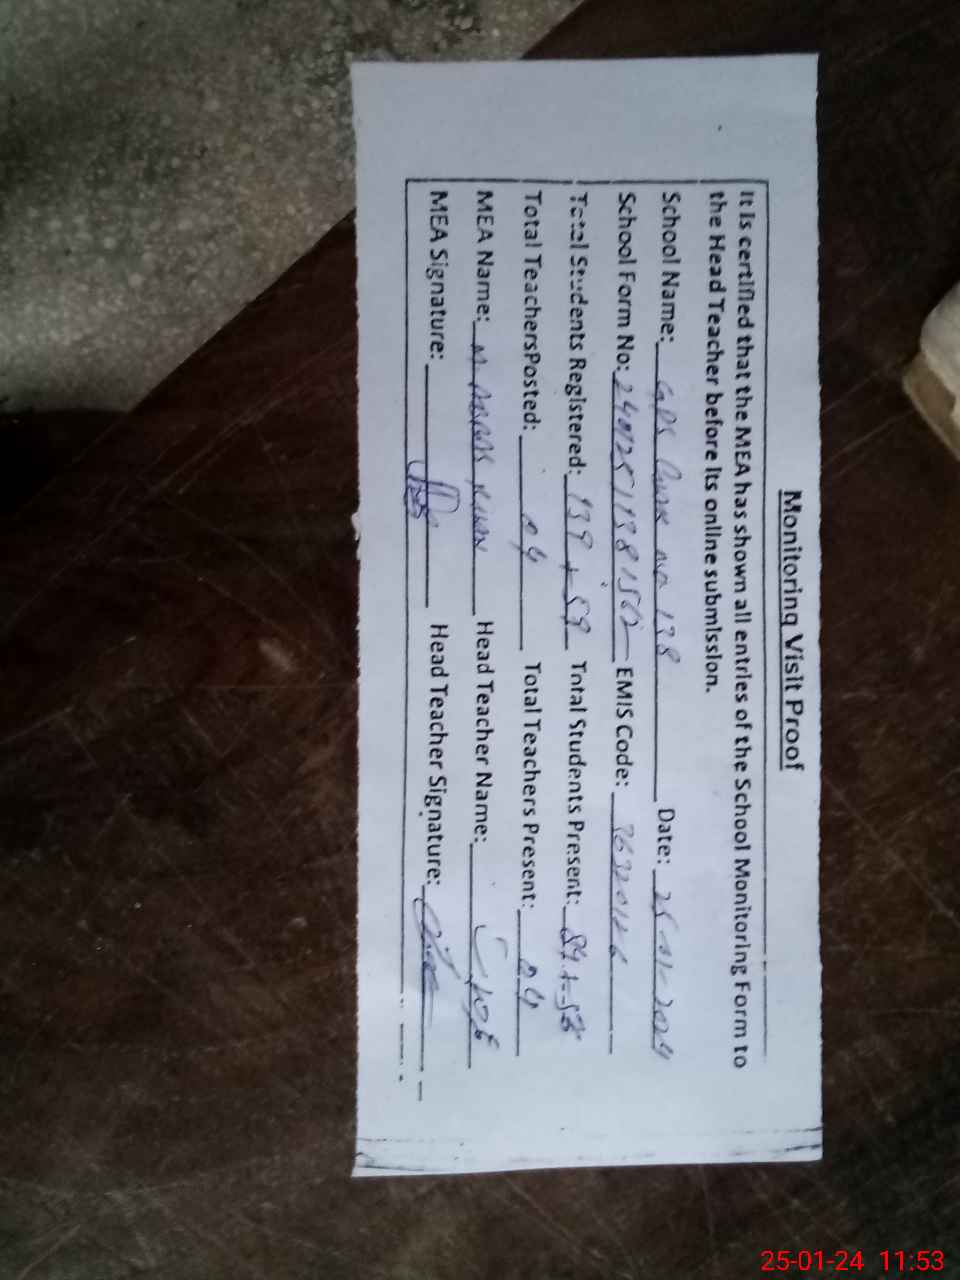 Monitoring Visit Proof
It is certified that the MEA has shown all entries of the School Monitoring Form to
the Head Teacher before its online submission.
School Name: GPS Chak no 138 Date: 2024
School Form No: EMIS Code:
Total Students Registered: 139 + 59 Total Students Present: 84 + 58
Total TeachersPosted: 04 Total Teachers Present: 04
MEA Name: M. ABBAS KHAN Head Teacher Name:
MEA Signature: Head Teacher Signature:
25-01-24 11:53